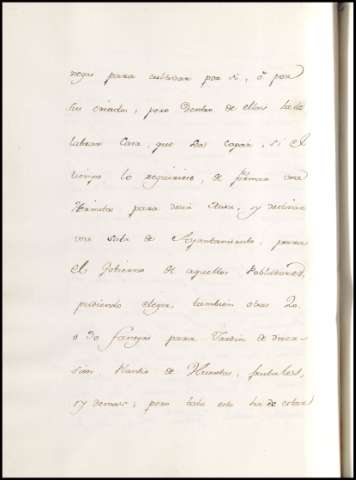 negas para cultivar por si, ó por
su criado, pero dentro de ellas ha de
labrar Casa que las copan, si el
tiempo lo requiriere, de formar una
Hermita para decir Misa, y destinar
una Sala de Ayuntamiento, para
el Gobierno de aquellas Poblaciones,
pudiendo elegir tambien otras 20
o 30 fanegas para Jardin de diver-
sion, Planta de Huertas, frutales,
y demas; pero todo esto ha de estar